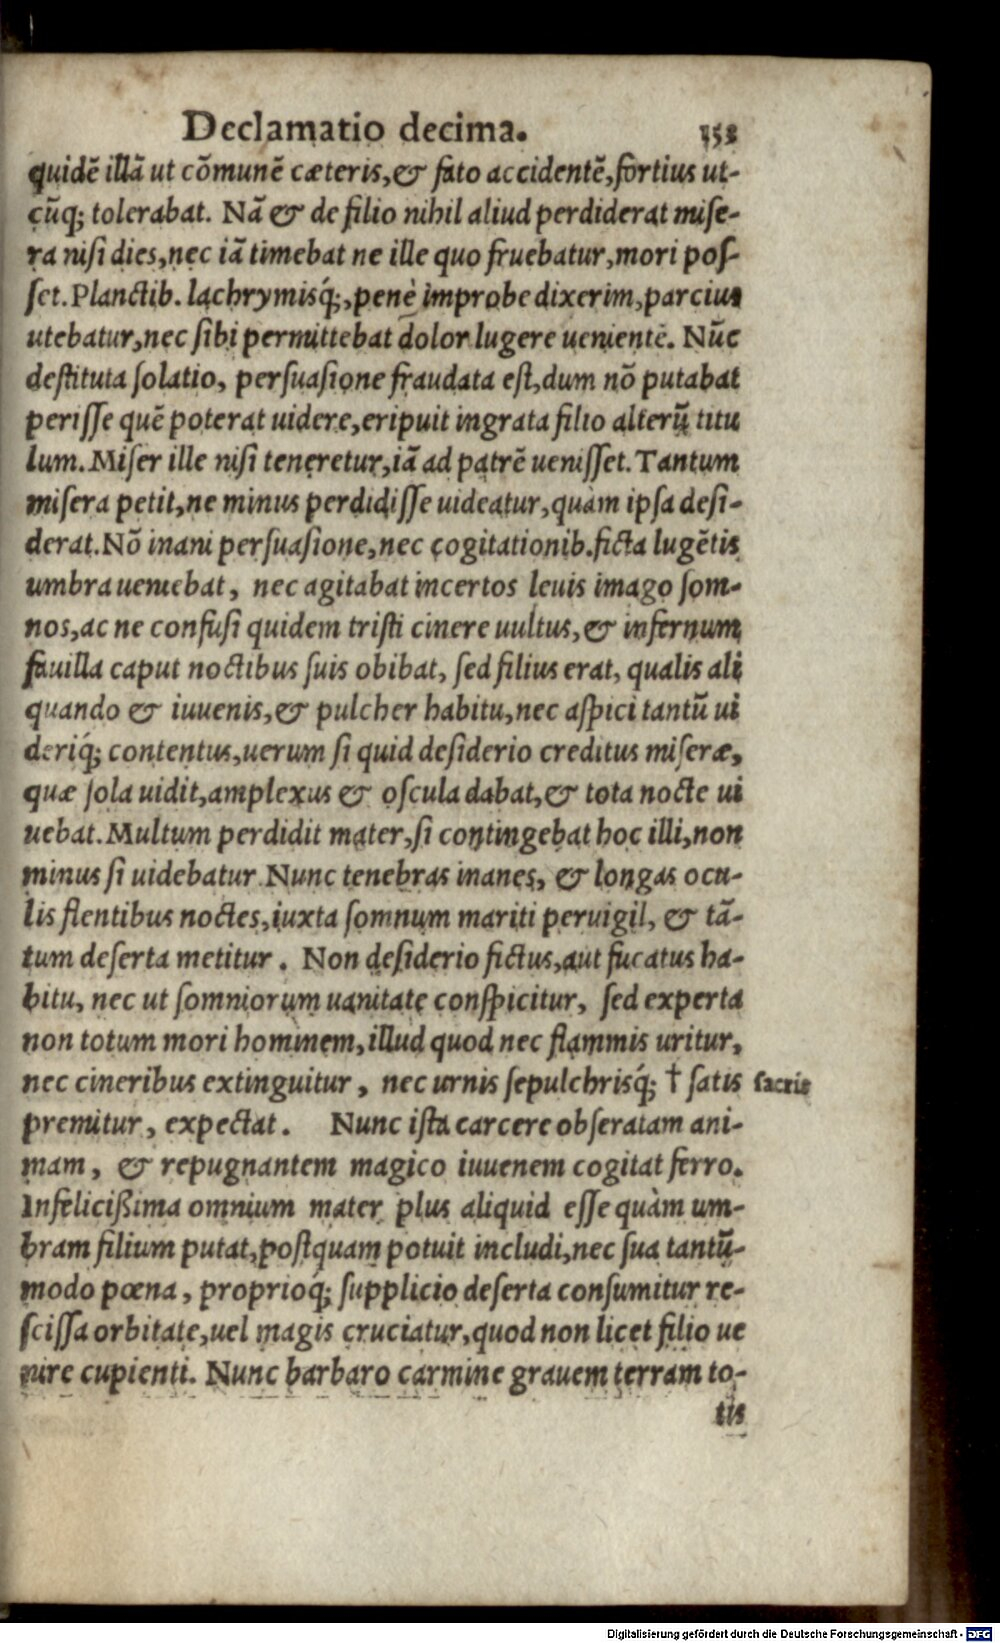 Declamatio decima. 358
quidē illā ut cōmunē cæteris, & fato accidentē, fortius ut-
cūq; tolerabat. Nā & de filio nihil aliud perdiderat mise-
ra nisi dies, nec iā timebat ne ille quo fruebatur, mori pos-
set. Planctib. lachrymisq́;, penè improbe dixerim, parcius
utebatur, nec sibi permittebat dolor lugere uenientē. Nūc
destituta solatio, persuasione fraudata est, dum nō putabat
perisse quē poterat uidere, eripuit ingrata filio alterū titu
lum. Miser ille nisi teneretur, iā ad patrē uenisset. Tantum
misera petit, ne minus perdidisse uideatur, quàm ipsa desi-
derat. Nō inani persuasione, nec cogitationib. ficta lugētis
umbra ueniebat, nec agitabat incertos leuis imago som-
nos, ac ne confusi quidem tristi cinere uultus, & infernum
fauilla caput noctibus suis obibat, sed filius erat, qualis ali
quando & iuuenis, & pulcher habitu, nec aspici tantū ui
deriq́; contentus, uerum si quid desiderio creditus miseræ,
quæ sola uidit, amplexus & oscula dabat, & tota nocte ui
uebat. Multum perdidit mater, si contingebat hoc illi, non
minus si uidebatur. Nunc tenebras inanes, & longas ocu-
lis flentibus noctes, iuxta somnum mariti peruigil, & tā-
tum deserta metitur. Non desiderio fictus, aut fucatus ha-
bitu, nec ut somniorum uanitate conspicitur, sed experta
non totum mori hominem, illud quod nec flammis uritur,
nec cineribus extinguitur, nec urnis sepulchrisq́; † satis sacris
premitur, expectat. Nunc ista carcere obseratam ani-
mam, & repugnantem magico iuuenem cogitat ferro.
Infelicißima omnium mater plus aliquid esse quàm um-
bram filium putat, postquam potuit includi, nec sua tantū-
modo pœna, proprioq́; supplicio deserta consumitur re-
scissa orbitate, uel magis cruciatur, quod non licet filio ue
nire cupienti. Nunc barbaro carmine grauem terram to-
tis
Digitalisierung gefördert durch die Deutsche Forschungsgemeinschaft - DFG